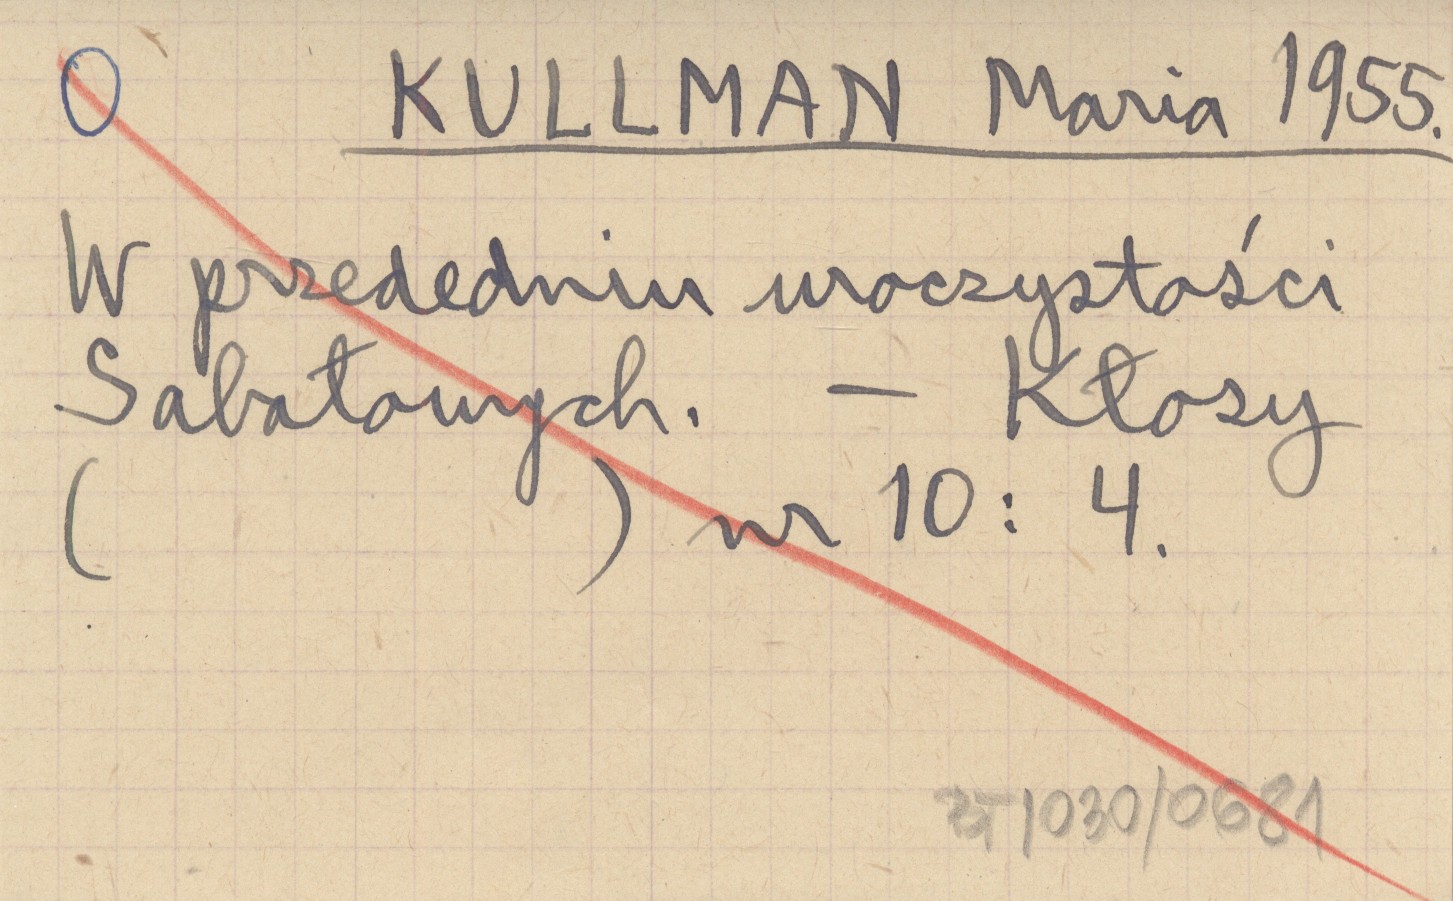 O KULLMAN Maria 1955.
W przededniu uroczystości
Sabałowych. – Kłosy
( ) nr 10: 4.
1030/0681